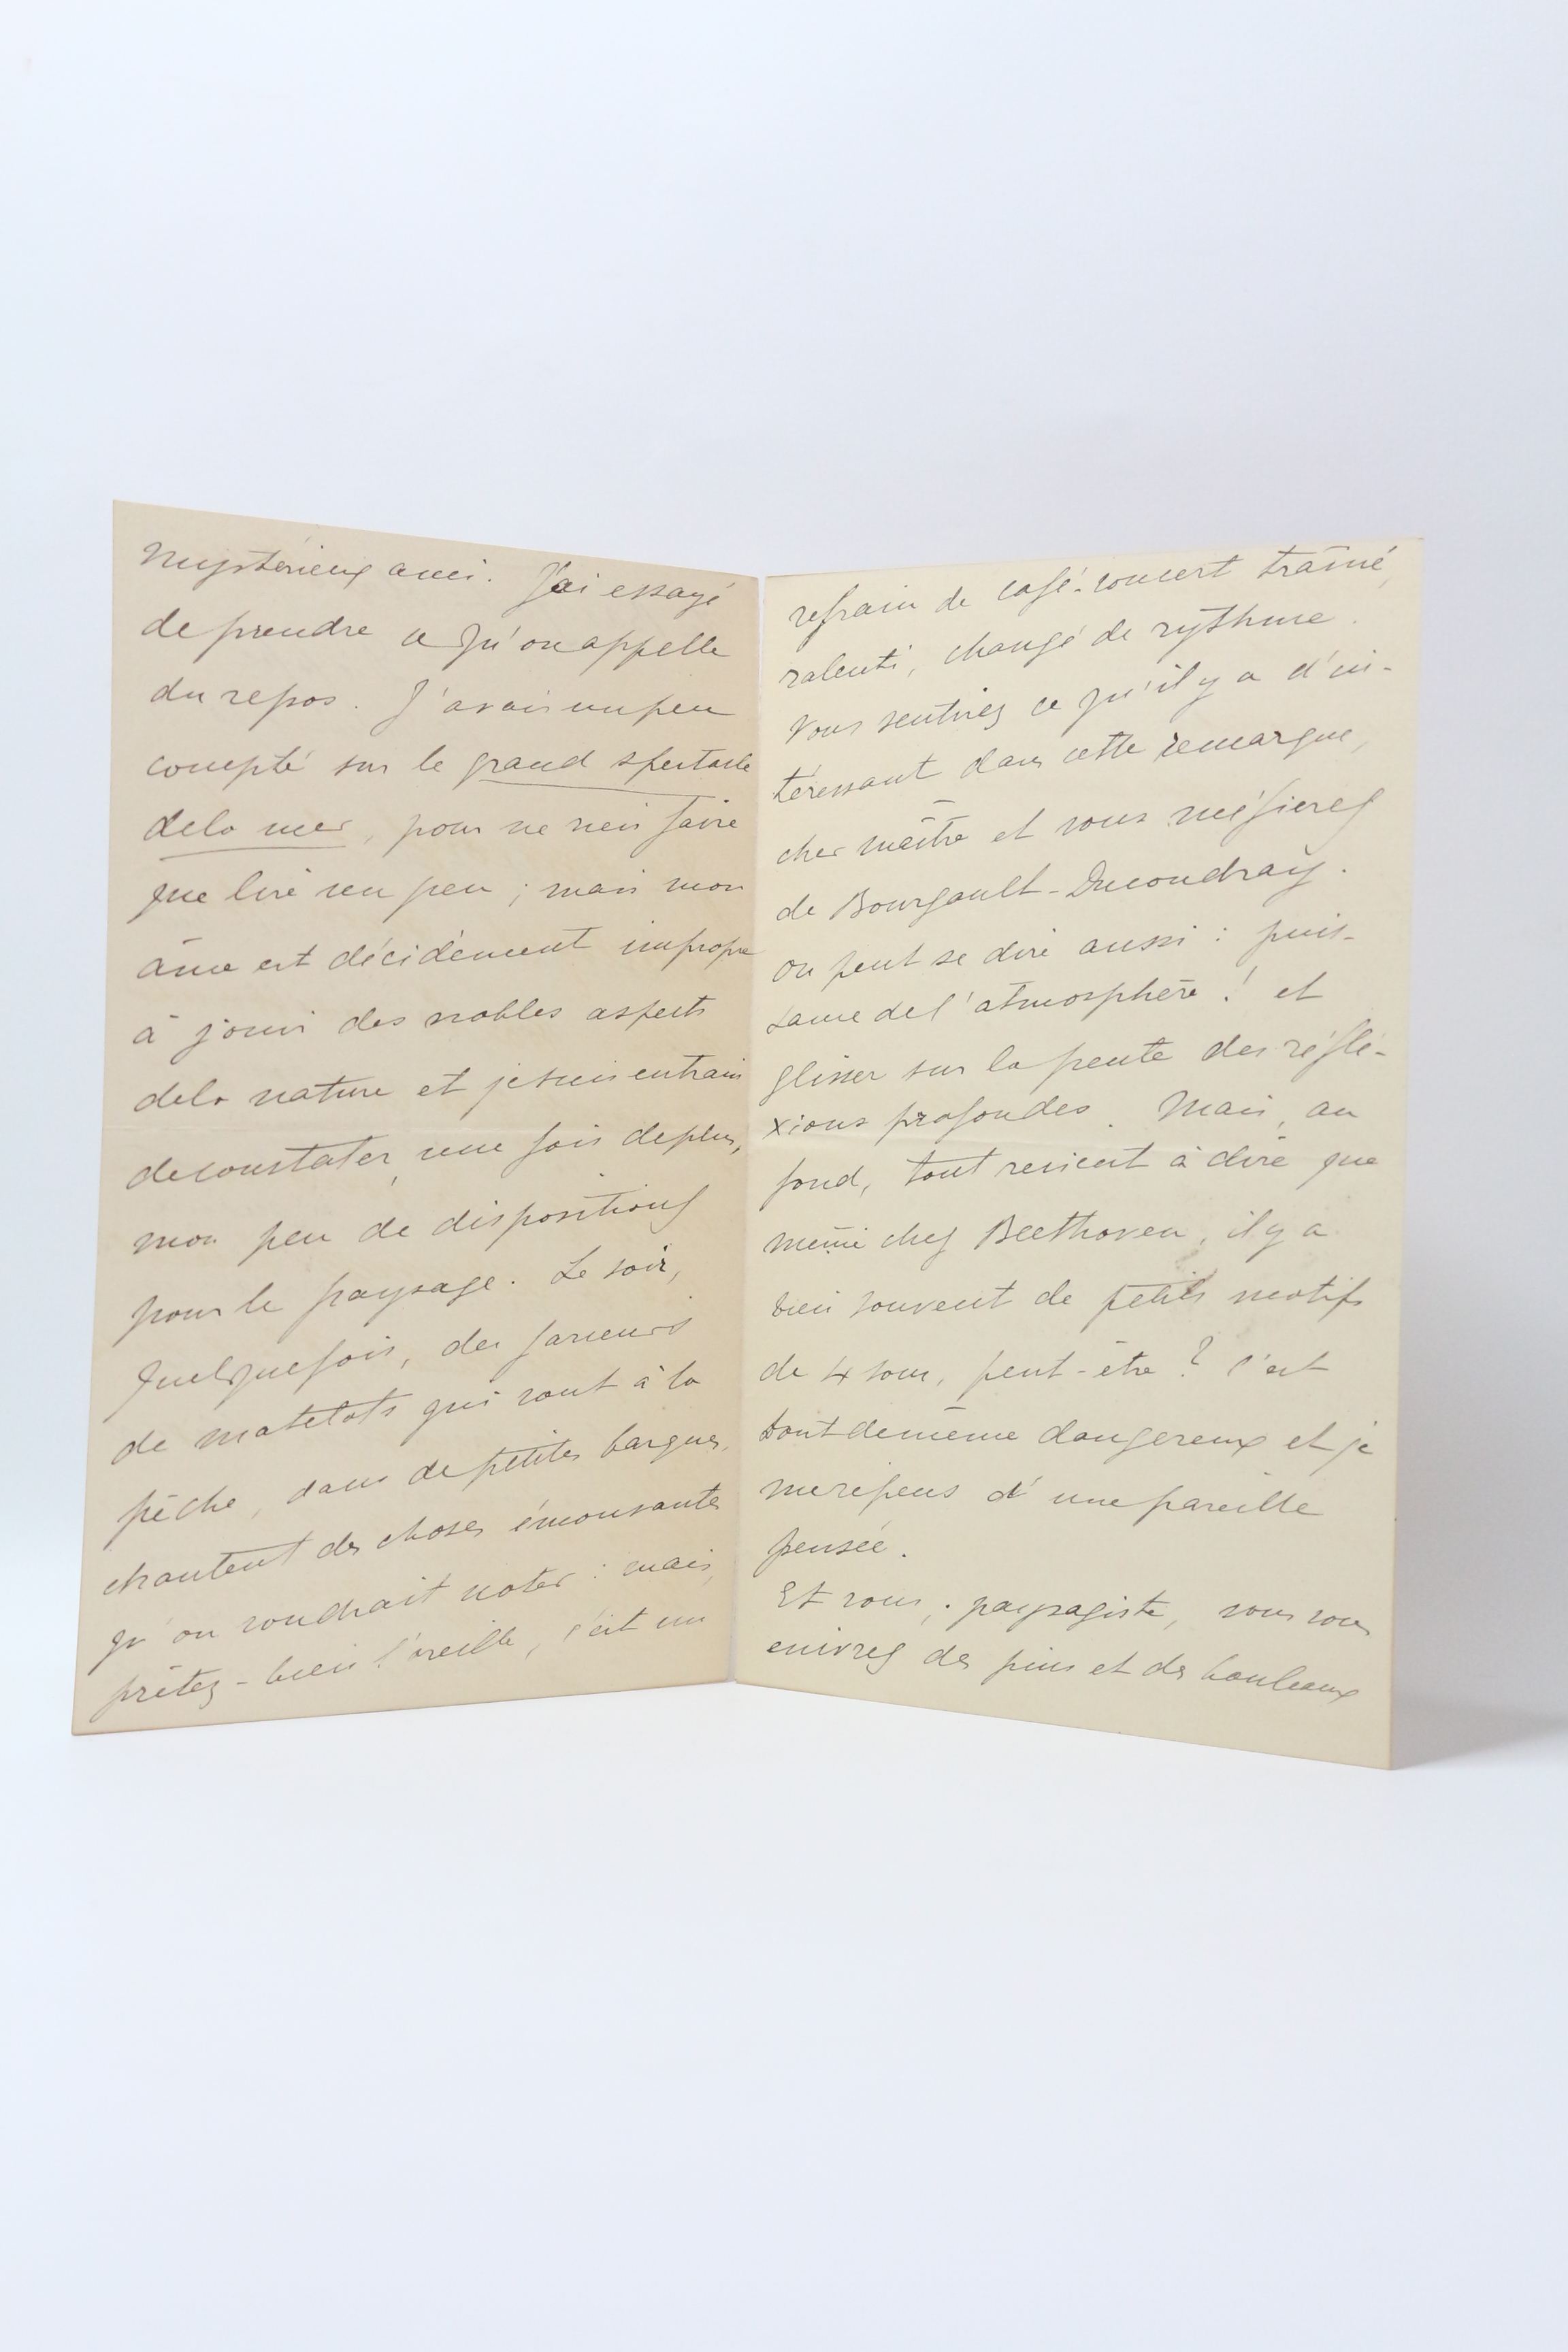 Mystérieux ami. J'ai essayé
de prendre ce qu'on appelle
du repos. J'avais un peu
compté sur le grand spectacle
de la mer, pour ne rien faire
que lire un peu ; mais mon
âme est décidément impropre
à jouir des nobles aspects
de la nature et je suis entrain
de constater, une fois de plus,
mon peu de dispositions
pour le paysage. Le soir,
quelquefois, des farceurs
de matelots qui vont à la
pêche, dans de petites barques,
chantent des choses émouvantes
qu'on voudrait noter : mais,
prêtez-bien l'oreille, c'est un
refrain de café-concert traîné,
ralenti, changé de rythme.
Vous sentirez ce qu'il y a d'in-
téressant dans cette remarque,
cher maître et vous méfierez
de Bourgault-Ducoudray.
On peut se dire aussi : puis-
sance de l'atmosphère ! et
glisser sur la pente des réfle-
xions profondes. Mais, au
fond, tout revient à dire que
même chez Beethoven, il y a
bien souvent de petits motifs
de 4 sous, peut-être ? C'est
tout de même dangereux et je
me repens d'une pareille
pensée.
Et vous, paysagiste, vous vous
enivrez des pins et des bouleaux